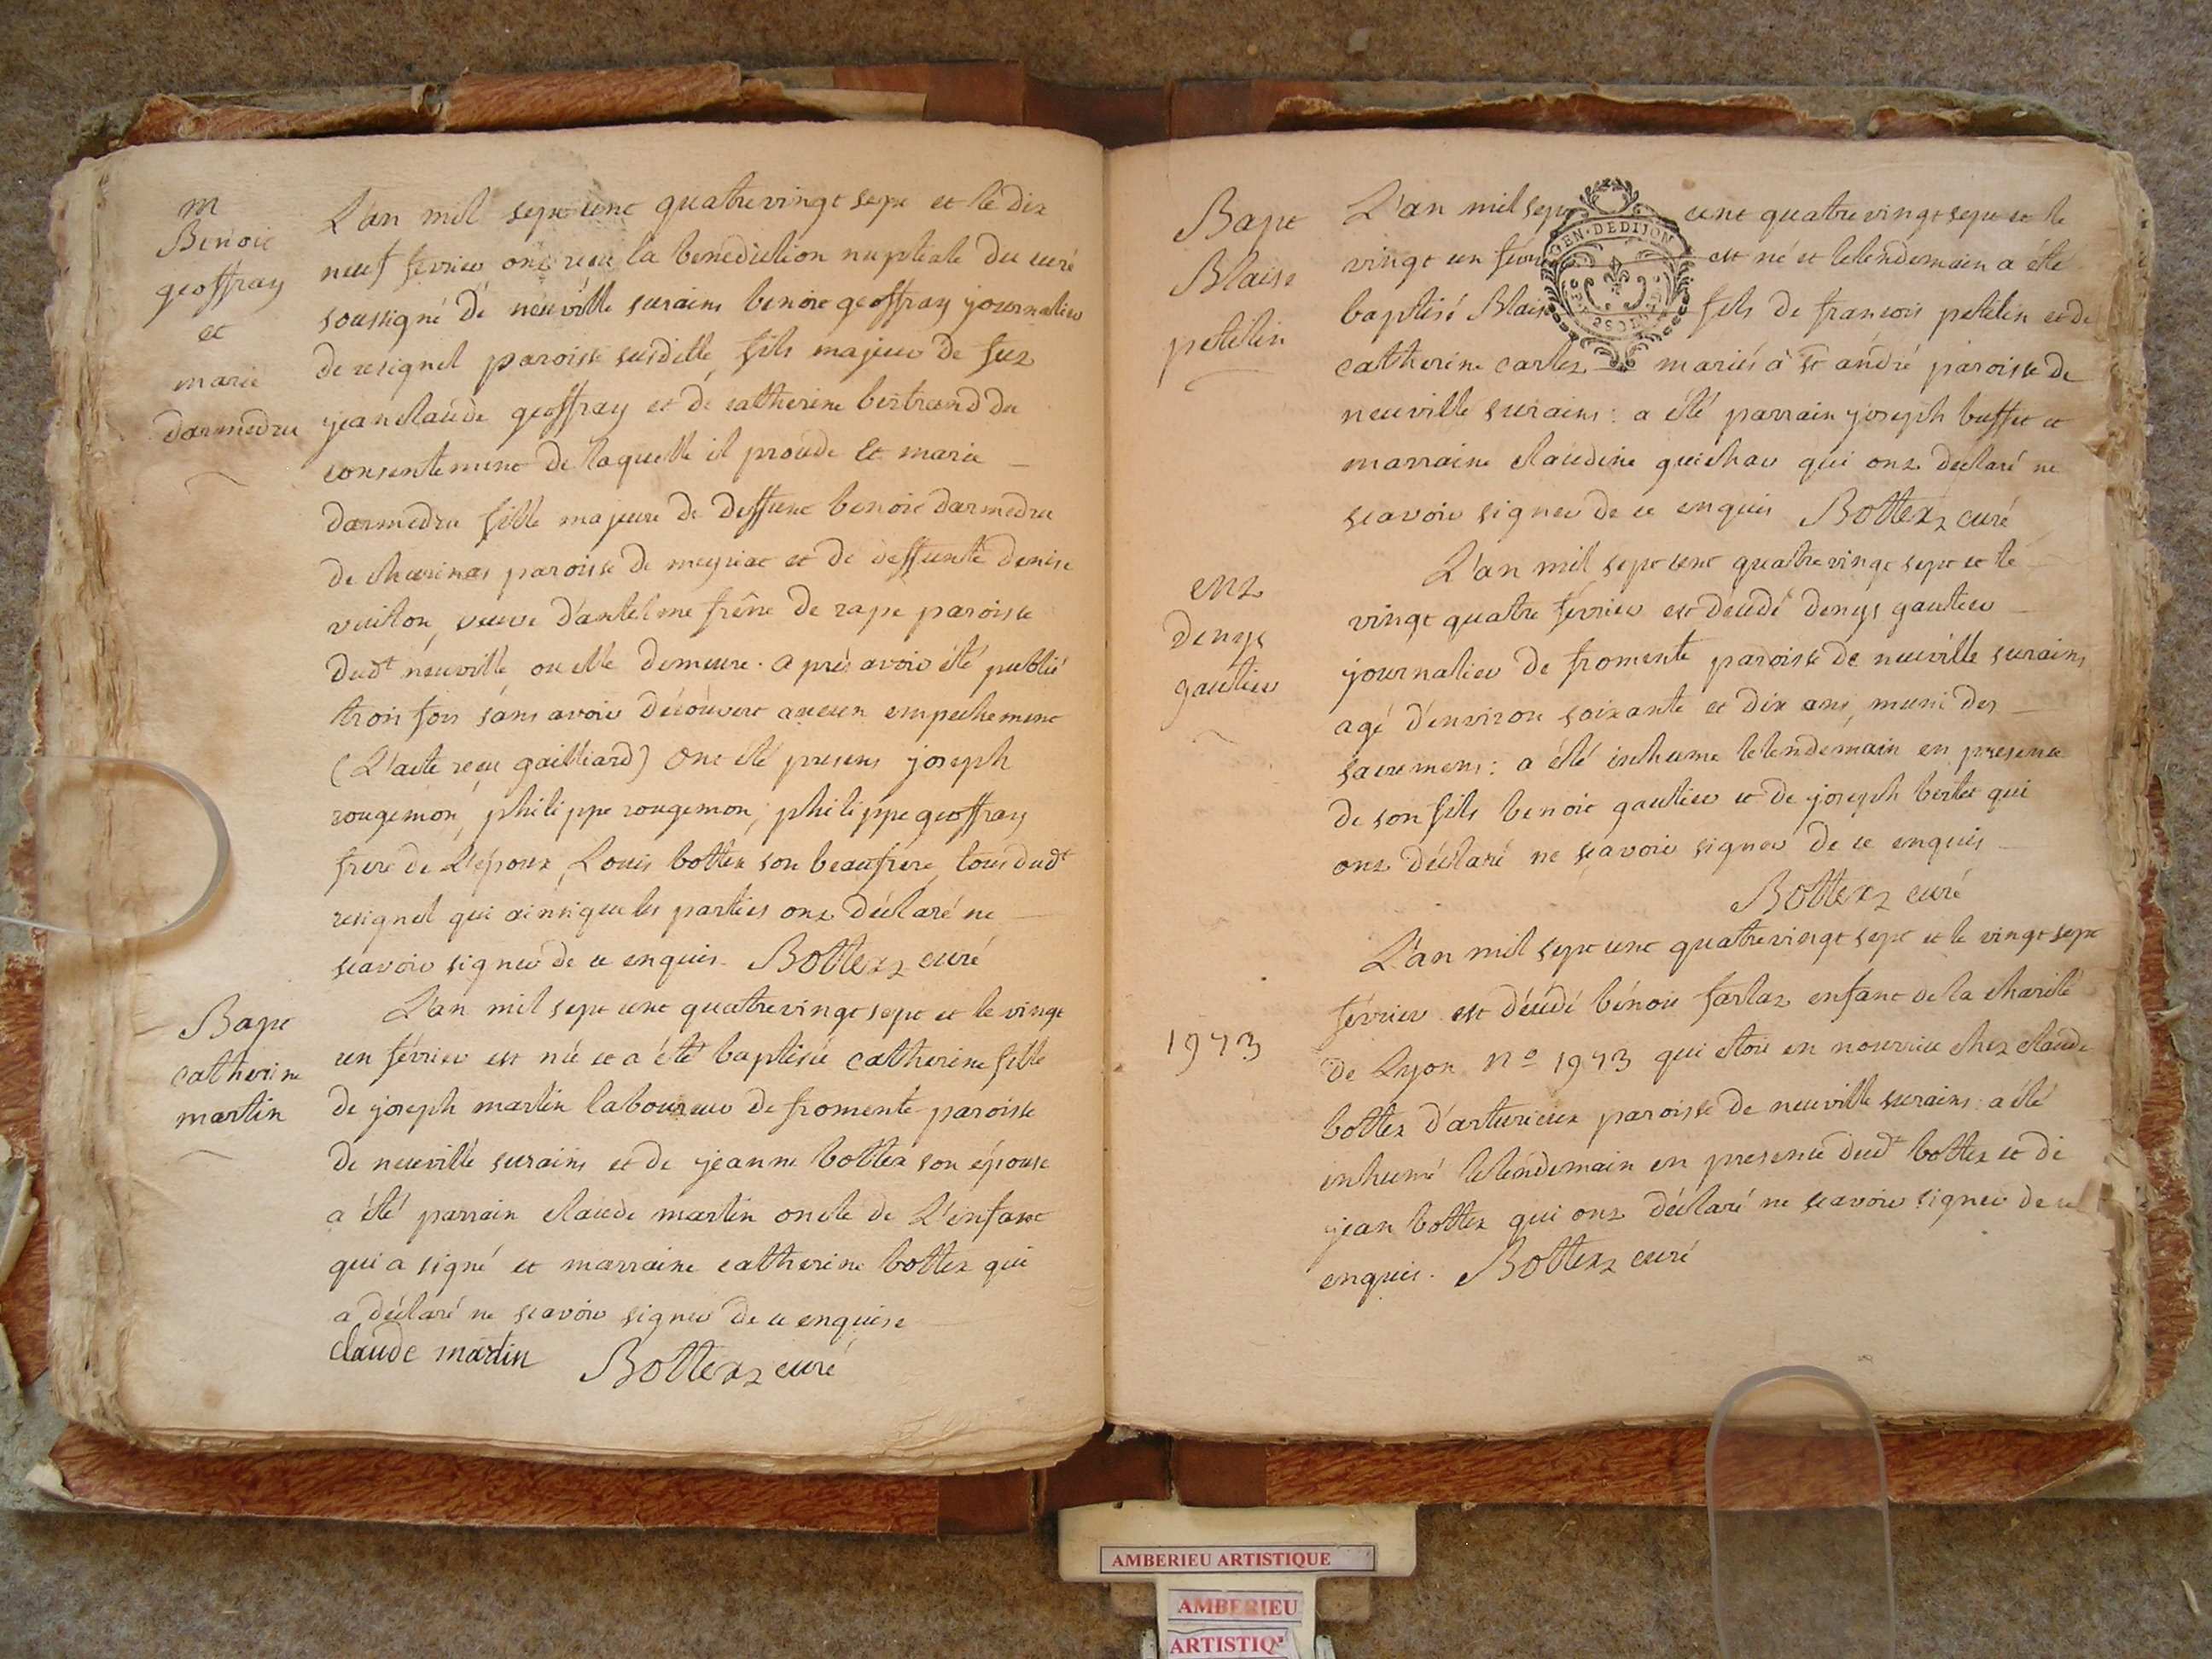 m
Benoit
geoffray
et
marie
darmedru
L'an mil sept cent quatrevingt sept et le dix
neuf fevrier ont reçu la benediction nuptiale du curé
soussigné de neuville surains benoit geoffray journalier
de resignel paroisse susditte, fils majeur de fut
jean claude geoffray et de catherine bertrand du
consentement de laquelle il procede et marie
darmedru fille majeure de deffunt benoit darmedru
de charinas paroisse de meyriat et de deffunte denise
vuiton, veuve d'antelme frêne de rape paroisse
dudt neuville ou elle demeure. après avoir été publié
trois fois sans avoir découvert aucun empechement
(L'acte reçu gailliard) ont été presens joseph
rougemon, philippe rougemon, philippe geoffray
frere de L'époux, Louis bottex son beaufrere, tous dudt
resignel qui ainsi que les parties ont déclaré ne
scavoir signer de ce enquis. Bottex curé
Bapt
catherine
martin
L'an mil sept cent quatrevingt sept et le vingt
un février est née et a été baptisée catherine fille
de joseph martin laboureur de fromente paroisse
de neuville surains et de jeanne bottex son épouse
a été parrain claude martin oncle de L'enfant
qui a signé et marraine catherine bottex qui
a déclaré ne scavoir signer de ce enquise
claude martin Bottex curé
Bapt
Blaise
petetin
L'an mil sept cent quatrevingt sept et le
GEN·DEDIJON
vingt un fevrier est né et lelendemain a été
baptisé Blaise fils de françois petetin et de
catherine carlez mariés à st andré paroisse de
neuville surains: a été parrain joseph buffet et
marraine claudine guichar qui ont declaré ne
scavoir signer de ce enquis Bottex curé
ent
denys
gautier
L'an mil sept cent quatre vingt sept et le
vingt quatre février est décédé denys gautier
journalier de fromente paroisse de neuville surains
agé d'environ soixante et dix ans, muni des
sacremens: a été inhumé lelendemain en presence
de son fils benoit gautier et de joseph bertet qui
ont déclaré ne scavoir signer de ce enquis
Bottex curé
L'an mil sept cent quatrevingt sept et le vingt sept
février est décédé bénoit farlaz enfant de la charité
1973
de Lyon N° 1973 qui etoit en nourrice chez claude
bottex d'arturieux paroisse de neuville surains: a été
inhumé lelendemain en presence dudt bottex et de
jean bottex qui ont déclaré ne scavoir signer de ce
enquis. Bottex curé
AMBERIEU ARTISTIQUE
AMBERIEU
ARTISTIQ